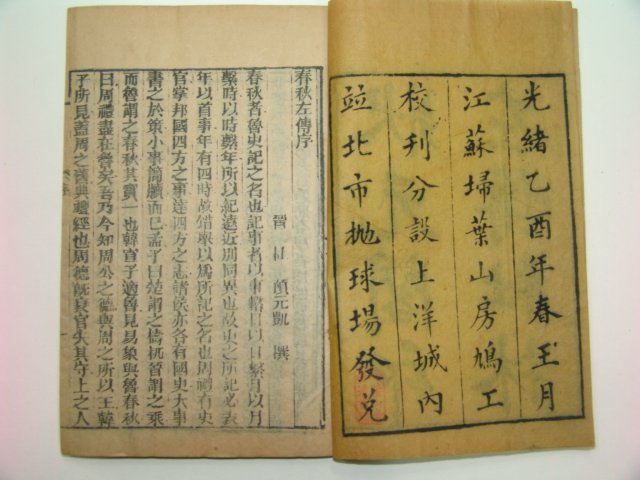 光緒乙酉年春王月
江蘇埽葉山房鳩工
校刊分設上洋城內
竝北市抛球場發兌
春秋左傳序
晉 杜 預元凱 撰
春秋者魯史記之名也記事者以事繫日以日繫月以月
繫時以時繫年所以紀遠近別同異也故史之所記必表
年以首事年有四時故錯舉以爲所記之名也周禮有史
官掌邦國四方之事達四方之志諸侯亦各有國史大事
書之於策小事簡牘而已孟子曰楚謂之檮杌晉謂之乘
而魯謂之春秋其實一也韓宣子適魯見易象與魯春秋
曰周禮盡在魯矣吾乃今知周公之德與周之所以王韓
子所見蓋周之舊典禮經也周德旣衰官失其守上之人